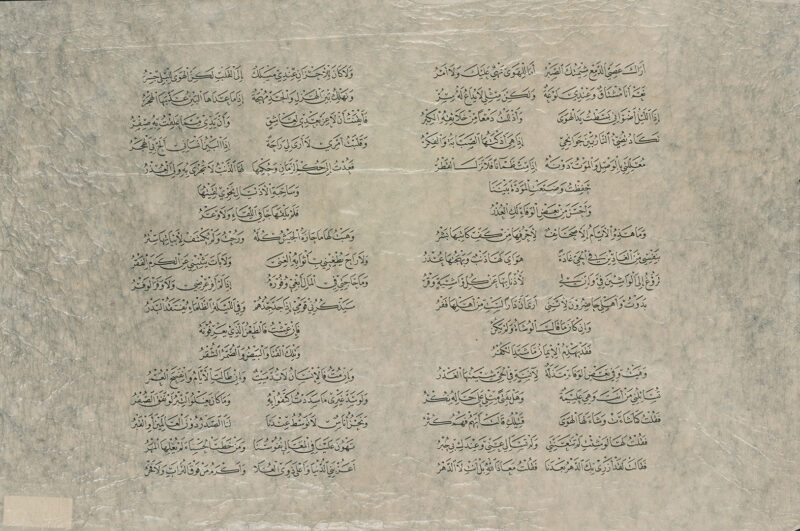 أراك عصي الدمع شيمتك الصبر أما للهوى نهي عليك ولا أمر
نعم أنا مشتاق وعندي لوعة ولكن مثلي لا يذاع له سر
إذا الليل أضواني بسطت يد الهوى وأذللت دمعا من خلائقه الكبر
تكاد تضيء النار بين جوانحي إذا هي أذكتها الصبابة والفكر
معللتي بالوصل والموت دونه إذا مت ظمآنا فلا نزل القطر
حفظت وضيعت المودة بيننا
وأحسن من بعض الوفاء لك العذر
وما هذه الأيام إلا صحائف لأحرفها من كف كاتبها بشر
بنفسي من الغادين في الحي غادة هواي لها ذنب وبهجتها عذر
تروغ إلى الواشين في وإن لي لأذنا بها عن كل واشية وقر
بدوت وأهلي حاضرون لأنني أرى أن دارا لست من أهلها قفر
وإن كان ما قال الوشاة ولم يكن
فقد يهدم الإيمان ما شيد الكفر
وفيت وفي بعض الوفاء مذلة لآنسة في الحي شيمتها الغدر
تسائلني من أنت وهي عليمة وهل بفتى مثلي على حاله نكر
فقلت كما شاءت وشاء لها الهوى قتيلك قالت أيهم فهم كثر
فقلت لها لو شئت لم تتعنتي ولم تسألي عني وعندك بي خبر
فقالت لقد أزرى بك الدهر بعدنا فقلت معاذ الله بل أنت لا الدهر
ولا كان للأحزان عندي مسلك إلى القلب لكن الهوى للبلى جسر
وتهلك بين الهزل والجد مهجة إذا ما عداها البين عذبها الهجر
فأيقنت أن لا عز بعدي لعاشق وأن يدي مما علقت به صفر
وقلبت أمري لا أرى لي راحة إذا البين أنساني ألح بي الهجر
فعدت إلى حكم الزمان وحكمها لها الذنب لا تجزى به ولي العذر
وساحبة الأذيال نحوي لقيتها
فلم يلقها جافي اللقاء ولا وعر
وهبت لها ما حازه الجيش كله ورحت ولم يكشف لأبياتها ستر
ولا راح يطغيني بأثوابه الغنى ولا بات يثنيني عن الكرم الفقر
وما حاجتي في المال أبغي وفوره إذا لم أفر عرضي فلا وفر الوفر
سيذكرني قومي إذا جد جدهم وفي الليلة الظلماء يفتقد البدر
فإن عشت فالطعن الذي يعرفونه
وتلك القنا والبيض والضمر الشقر
وإن مت فالإنسان لا بد ميت وإن طالت الأيام وانفسح العمر
ولو سد غيري ما سددت اكتفوا به وما كان يغلو التبر لو نفق الصفر
ونحن أناس لا توسط عندنا لنا الصدر دون العالمين أو القبر
تهون علينا في المعالي نفوسنا ومن خطب الحسناء لم يغلها المهر
أعز بني الدنيا وأعلى ذوي العلا وأكرم من فوق التراب ولا فخر